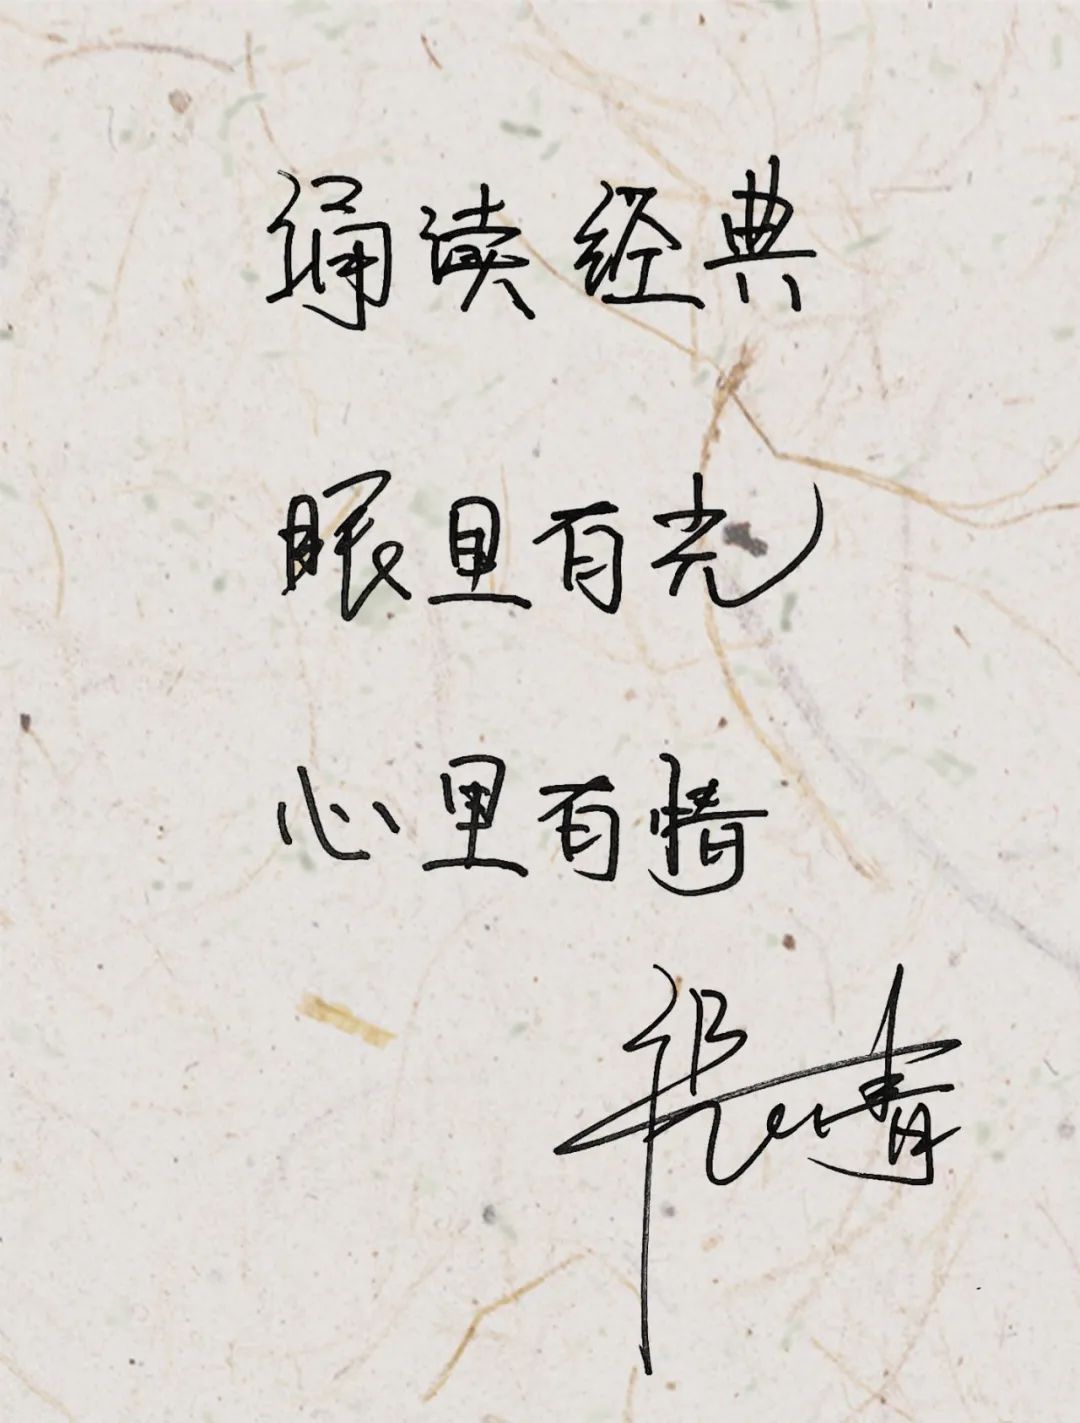 诵读经典
眼里有光
心里有情